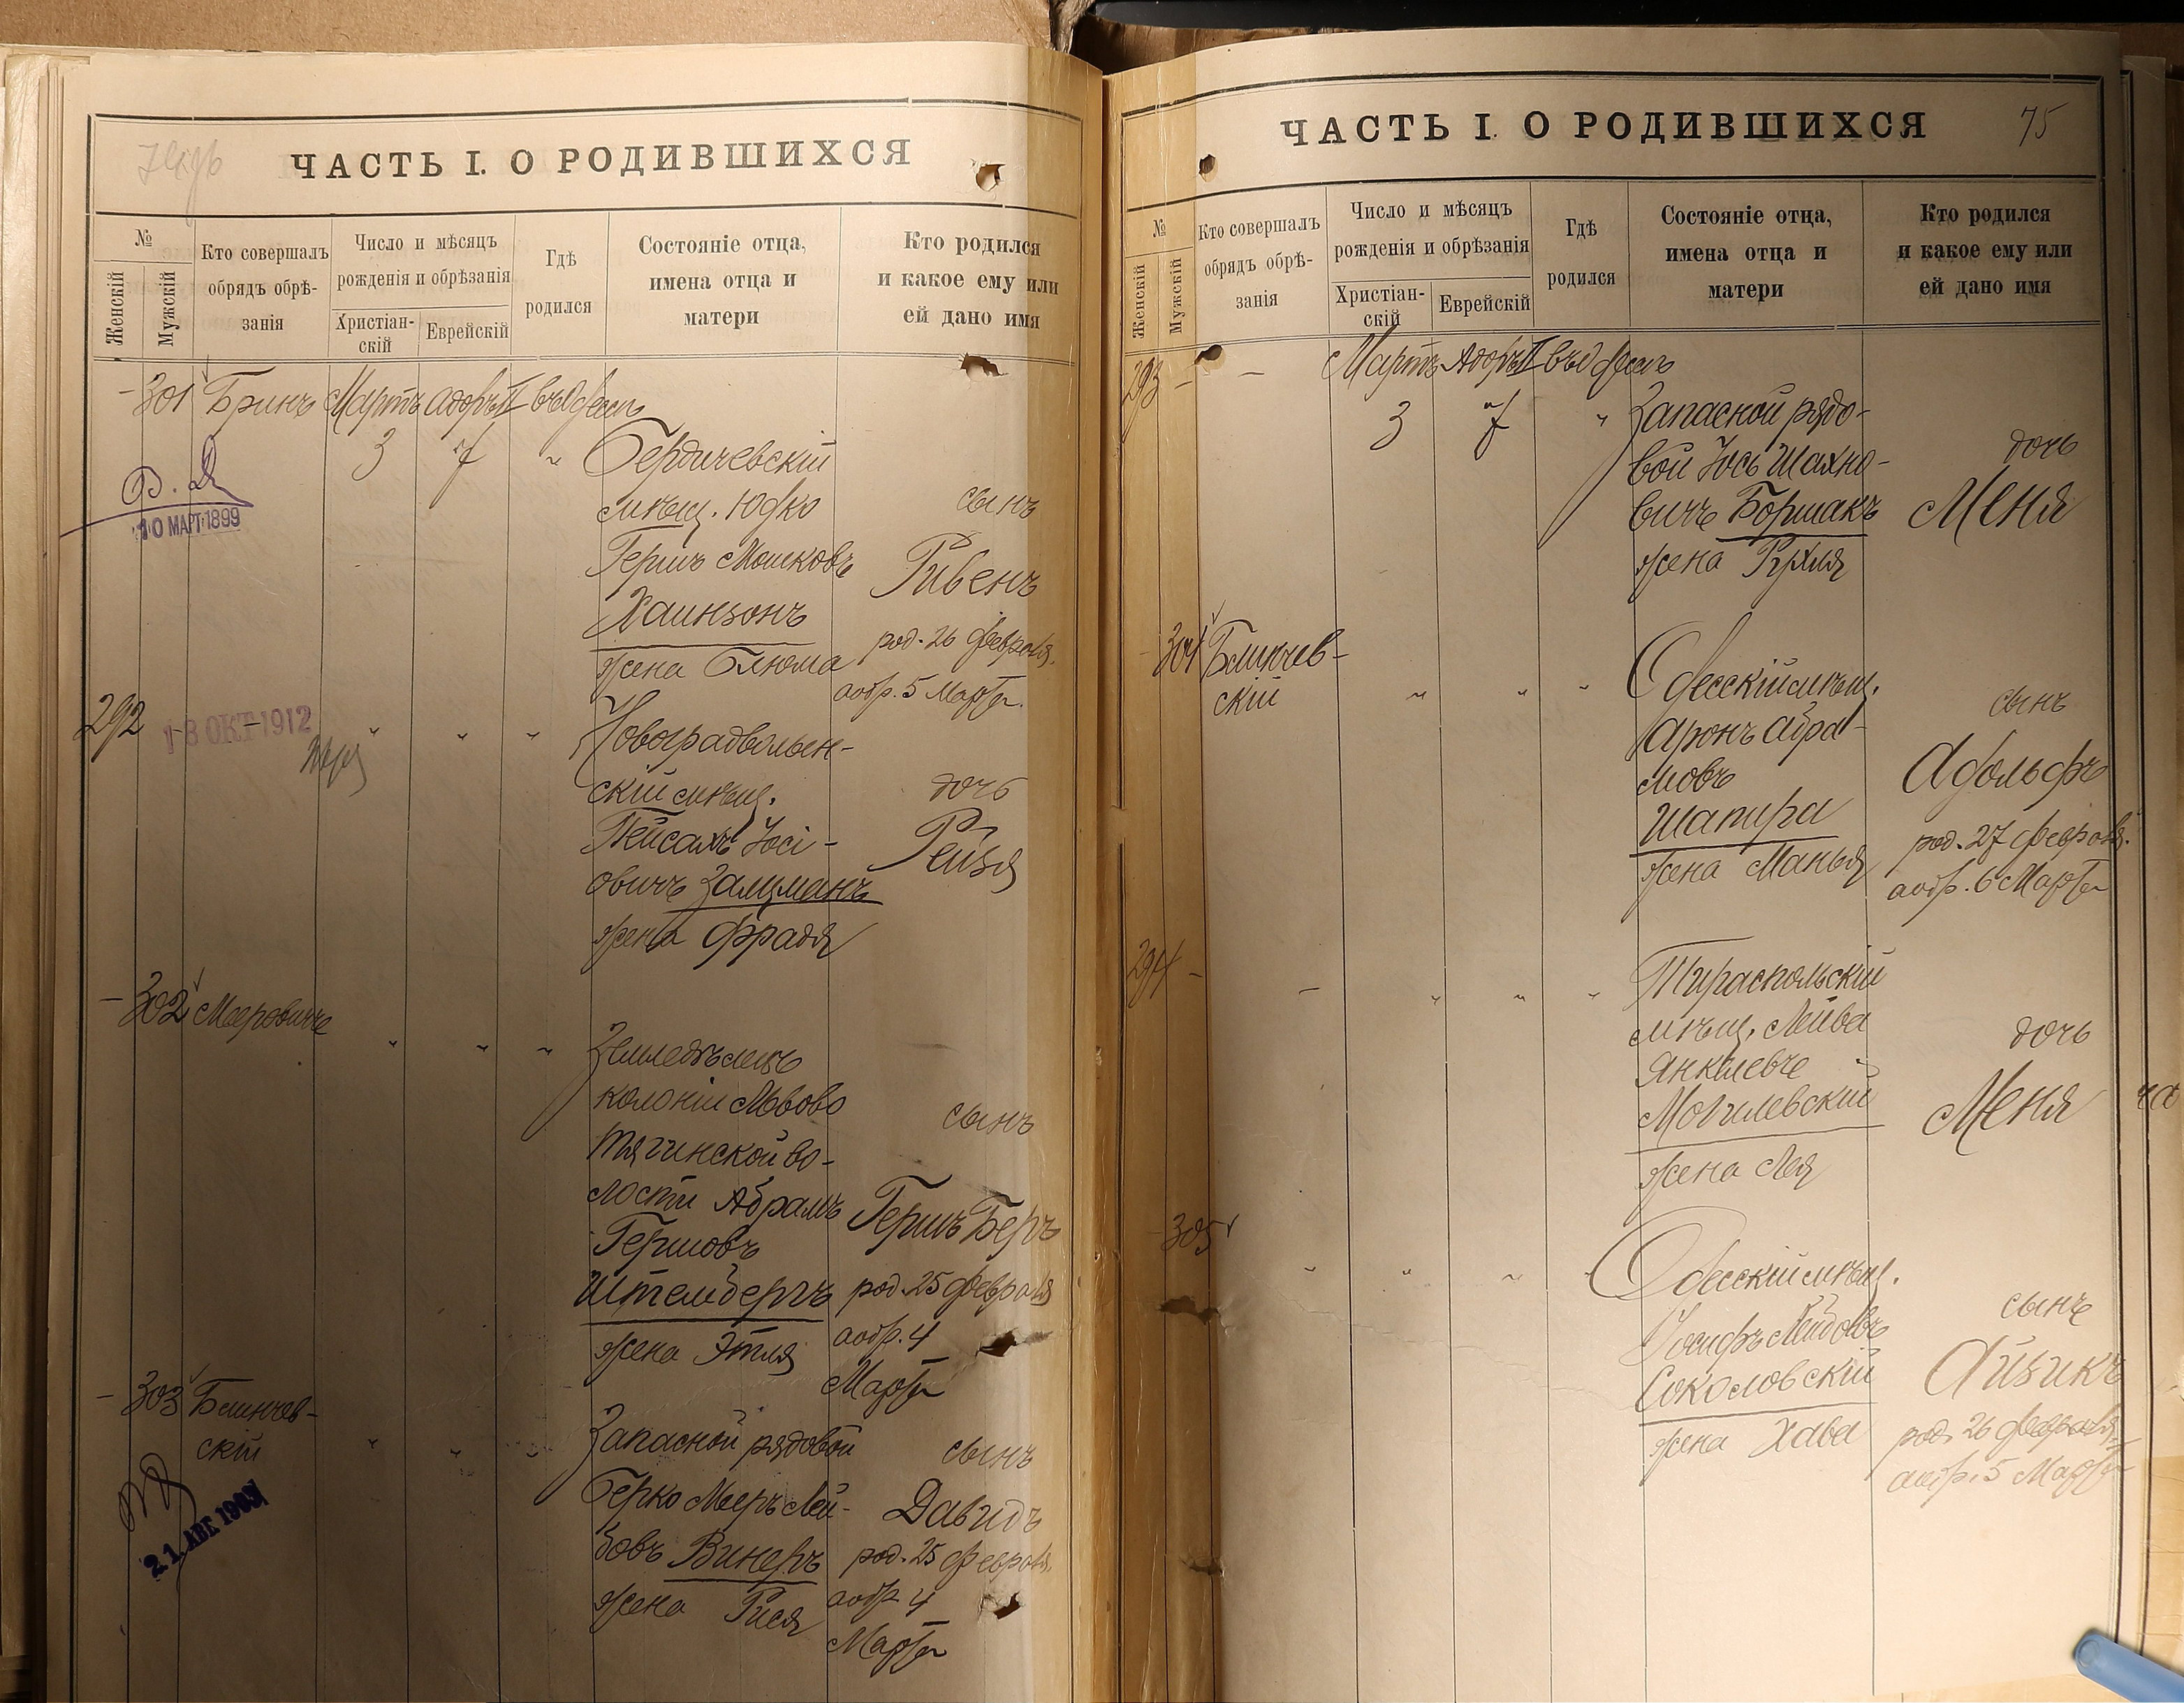 ЧАСТЬ I. О РОДИВШИХСЯ
№
Женскій
Мужскій
Кто совершалъ
обрядъ обрѣ-
занія
Число и мѣсяцъ
рожденія и обрѣзанія
Христіан-
скій
Еврейскій
Гдѣ
родился
Состояніе отца,
имена отца и
матери
Кто родился
и какое ему или
ей дано имя
301 Бринъ Мартъ Адоръ II въ Одессѣ
3 7 "
Бердичевскій
мѣщ. Юдко
Гершъ Мошковъ
Хаинзонъ
жена Блюма
сынъ
Ривенъ
род. 26 февраля
а обр. 5 Марта
10 МАРТ 1899
292 -
18 ОКТ 1912
" " "
Новоградволын-
скій мѣщ.
Пейсахъ Іосі-
овичъ Залцманъ
жена Фрадя
дочь
Рейзя
- 302 Мееровичъ
" " "
Земледѣлецъ
колоніи Львово
Тягинской во-
лости Абрамъ
Гершовъ
Штембергъ
жена Этля
сынъ
Гершъ Беръ
род. 25 февраля
а обр. 4
Марта
- 303 Блинчев-
скій
" " "
21 АВГ
Запасной рядовой
Берко Мееръ Лей-
бовъ Винеръ
жена Рися
сынъ
Давидъ
род. 25 февраля
а обр. 4
Марта
ЧАСТЬ I. О РОДИВШИХСЯ
75
№
Женскій
Мужскій
Кто совершалъ
обрядъ обрѣ-
занія
Число и мѣсяцъ
рожденія и обрѣзанія
Христіан-
скій
Еврейскій
Гдѣ
родился
Состояніе отца,
имена отца и
матери
Кто родился
и какое ему или
ей дано имя
293 - - Мартъ Адоръ II въ Одессѣ
3 7 "
Запасной рядо-
вой Іось Шахно-
вичъ Боршакъ
жена Рухля
дочь
Меня
304 Блинчев-
скій
" " "
Одесскій мѣщ.
Аронъ Абра-
мовъ
Шапира
жена Манья
сынъ
Адольфъ
род. 27 февраля
а обр. 6 Марта
294 -
- " " "
Тираспольскій
мѣщ. Лейба
Янкелевъ
Могилевскій
жена Лея
дочь
Меня
305
" " " "
Одесскій мѣщ.
Іосифъ Лейбовъ
Соколовскій
жена Хава
сынъ
Айзикъ
род. 26 февраля
а обр. 5 Марта